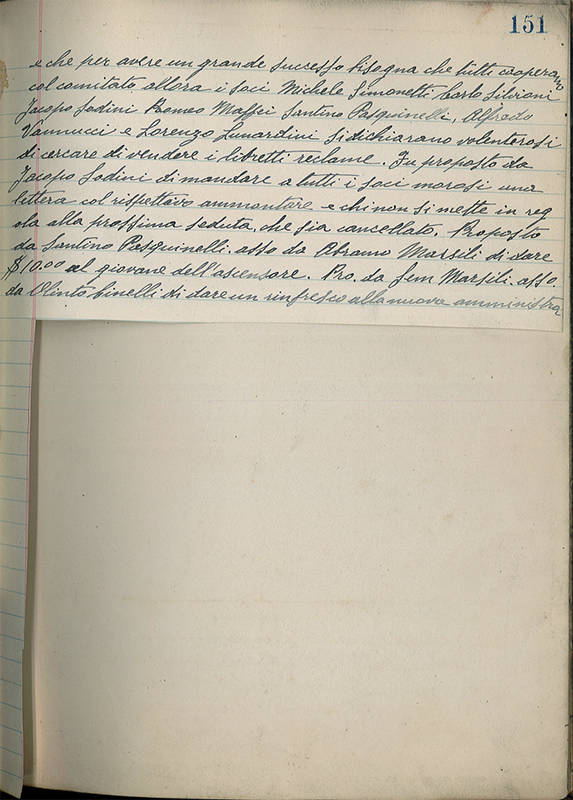 151
e che per avere un grande successo bisogna che tutti cooperano
col comitato allora i soci Michele Simonetti Carlo Silvioni
Jacopo Sodini Romeo Maffei Santino Pasquinelli, Alfredo
Vannucci e Lorenzo Lunardini si dichiarano volenterosi
di cercare di vendere i libretti reclame. Fu proposto da
Jacopo Sodini di mandare a tutti i soci morosi una
lettera col rispettivo ammontare e chi non si mette in reg
ola alla prossima seduta, che sia cancellato. Proposto
da Santino Pasquinelli. asso da Abramo Marsili di dare
$10.00 al giovane dell'ascensore. Pro. da Sem Marsili. asso.
da Olinto Cinelli di dare un rinfresco alla nuova amministra